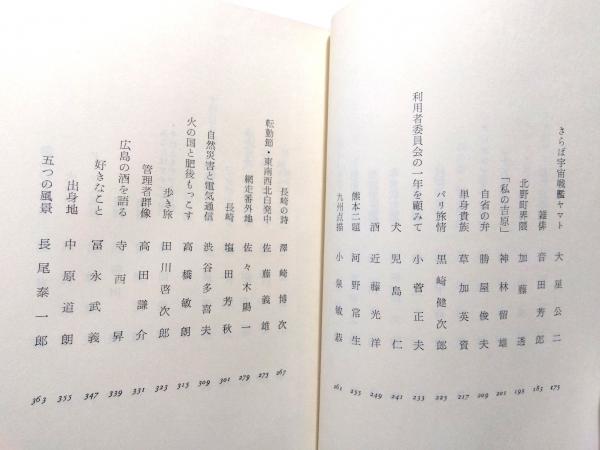 さらば宇宙戦艦ヤマト 大星公二 175
雑俳 音田芳郎 183
北野町界隈 加藤透 195
「私の吉原」 神林留雄 201
自省の弁 勝屋俊夫 209
単身貴族 草加英資 217
パリ旅情 黒崎健次郎 225
利用者委員会の一年を顧みて 小菅正夫 233
犬 児島仁 241
酒 近藤光洋 249
熊本二題 河野常生 255
九州点描 小泉敏恭 261
長崎の詩 澤崎博次 267
転勤節・東南西北白発中 佐藤義雄 273
網走番外地 佐々木陽一 279
長崎 塩田芳秋 301
自然災害と電気通信 渋谷多喜夫 309
火の国と肥後もっこす 高橋敏朗 315
歩き旅 田川啓次郎 323
管理者群像 高田謙介 331
広島の酒を語る 寺西昇 339
好きなこと 冨永武義 347
出身地 中原道朗 355
五つの風景 長尾泰一郎 363